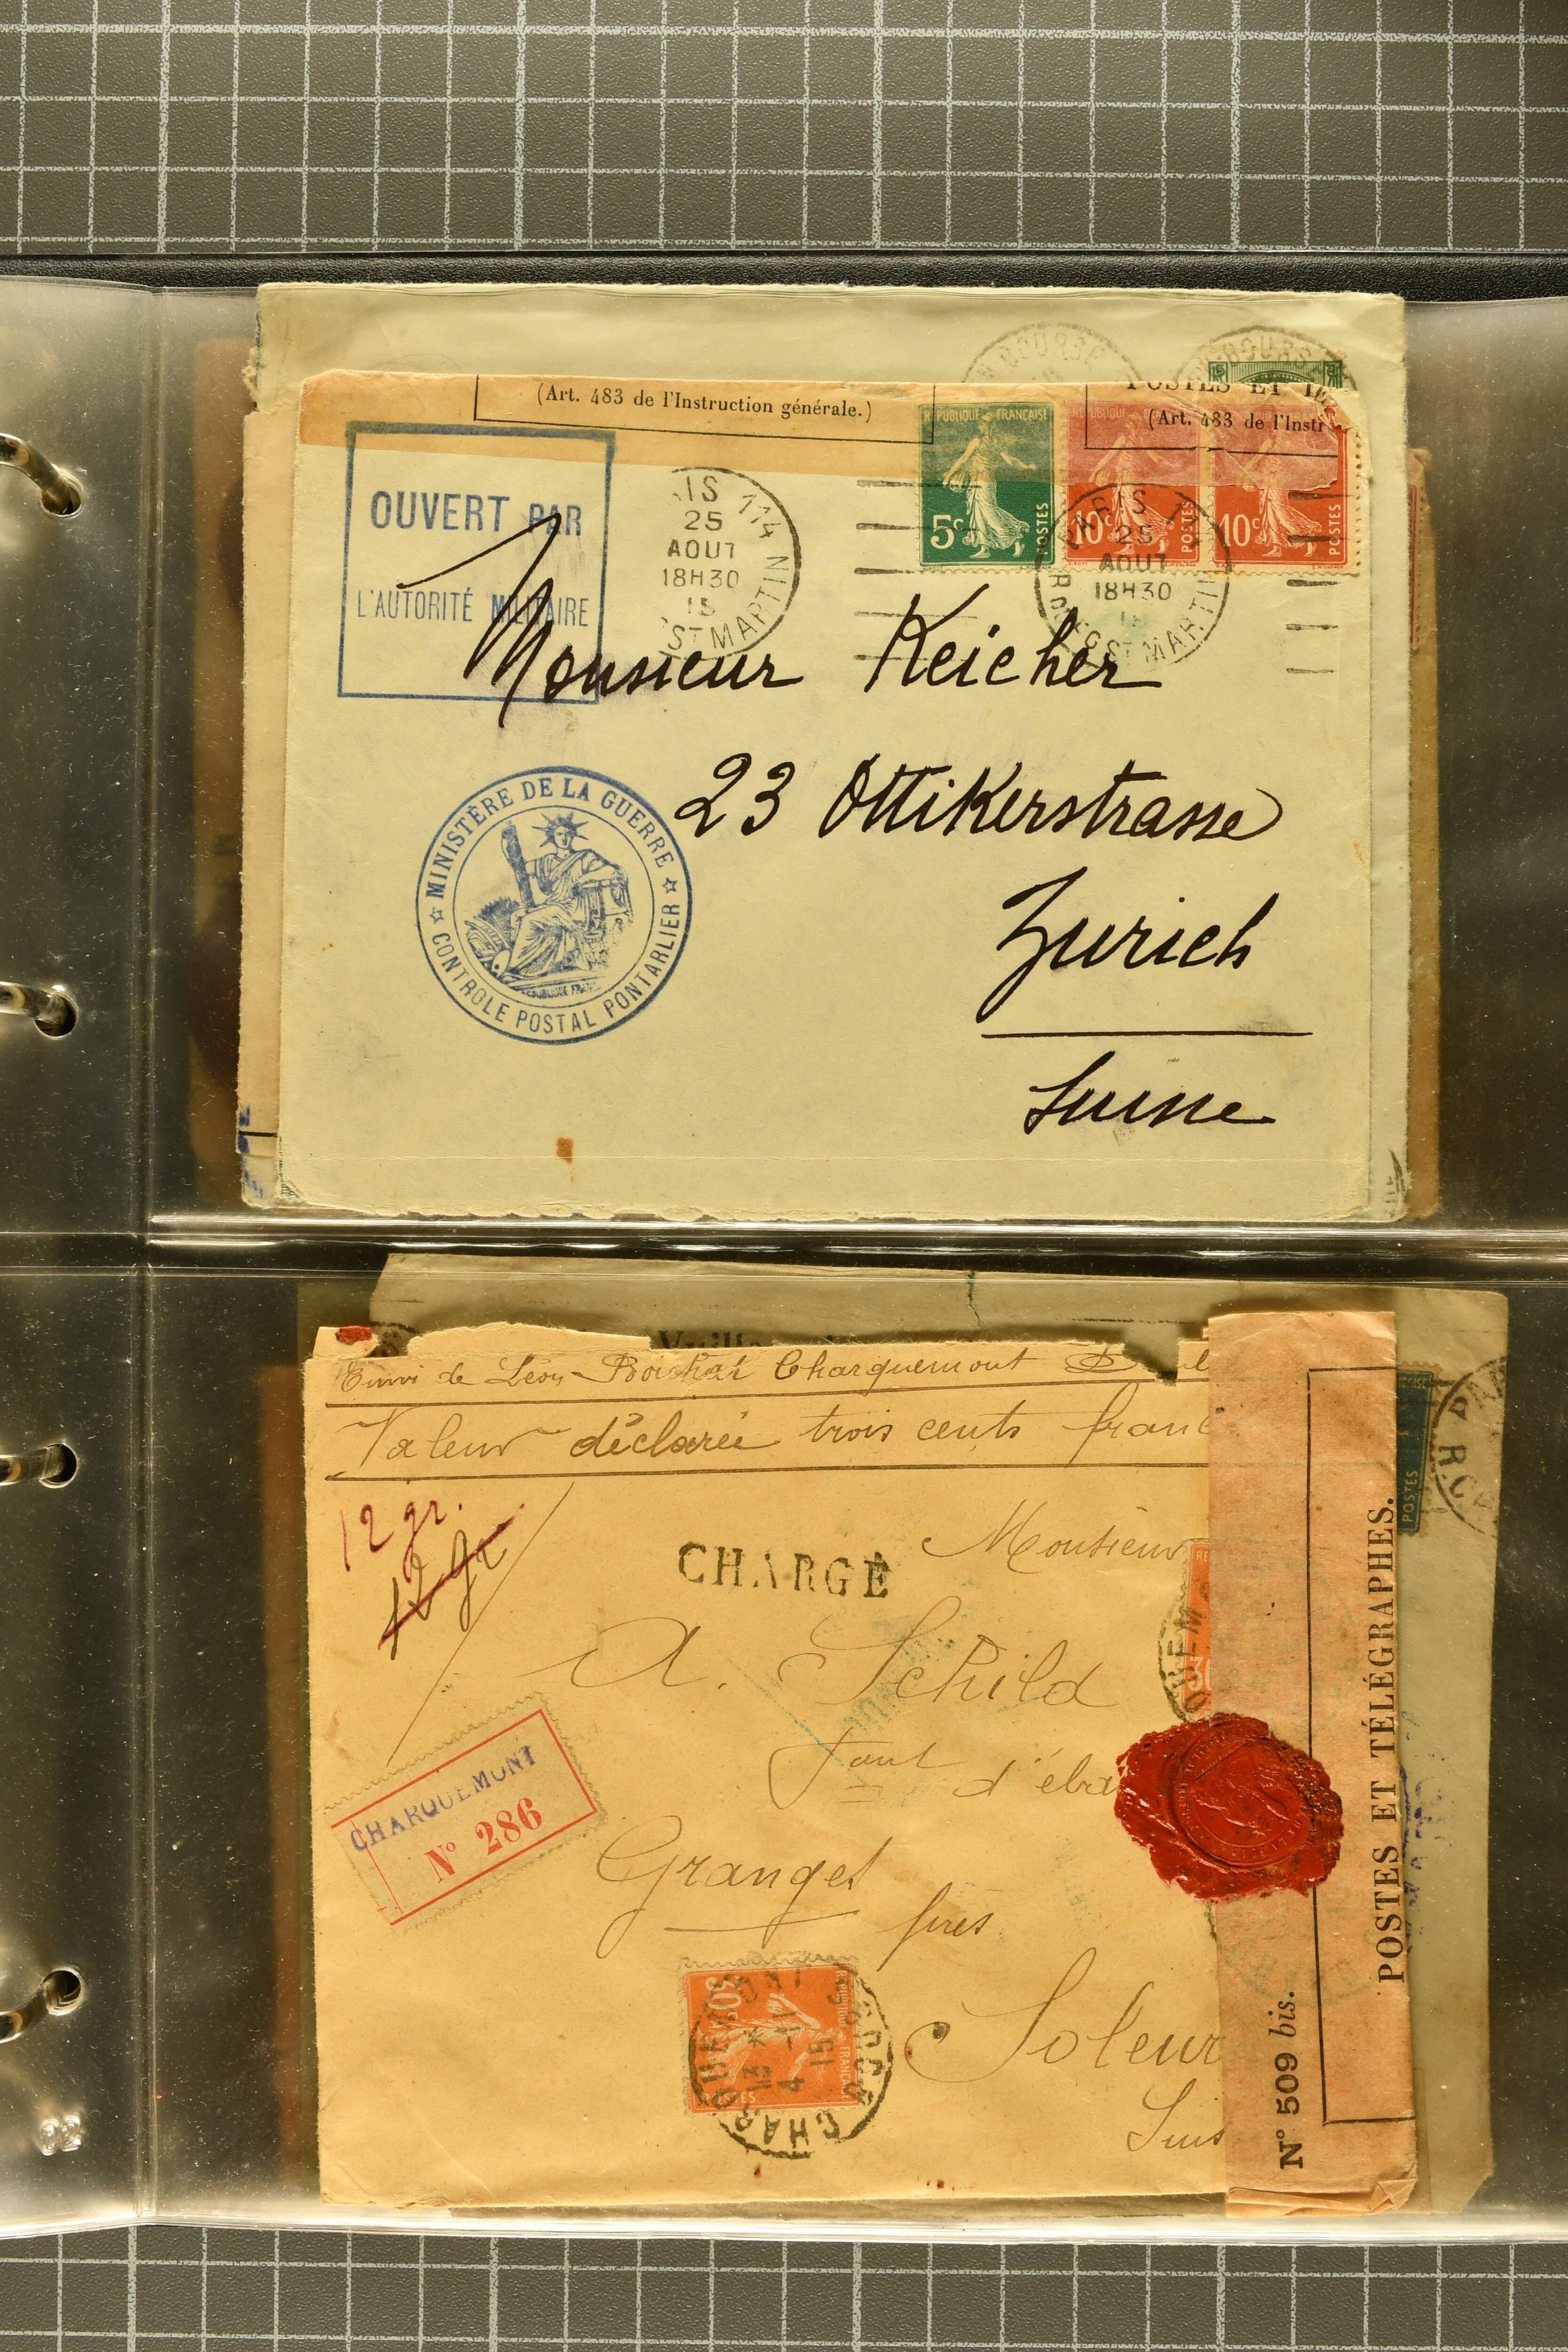 BOURSE
BOURS
POSTES ET
(Art. 483 de l'Instruction générale.)
(Art. 483 de l'Instr
OUVERT PAR
L'AUTORITÉ MILITAIRE
IS 114
25
AOUT
18H30
15
ST MARTIN
REPUBLIQUE FRANÇAISE
5c
POSTES
REPUBLIQUE
10c
POSTES
10c
POSTES
PARIS
25
AOUT
18H30
ST MARTIN
Monsieur Reicher
23 Ottikerstrasse
Zurich
Suisse
MINISTÈRE DE LA GUERRE
CONTROLE POSTAL PONTARLIER
Envoi de Léon Boichat Charquemont
Valeur déclarée trois cents franc
12 gr.
12 gr
CHARGÉ
Monsieur
A. Schild
d'éba
Granges
près
Soleur
Suis
CHARQUEMONT
N° 286
30
POSTES
CHARQUEMONT
13 * 
4 -11
15
DOUBS
30
QUEM
POSTES
N° 509 bis.
POSTES ET TÉLÉGRAPHES.